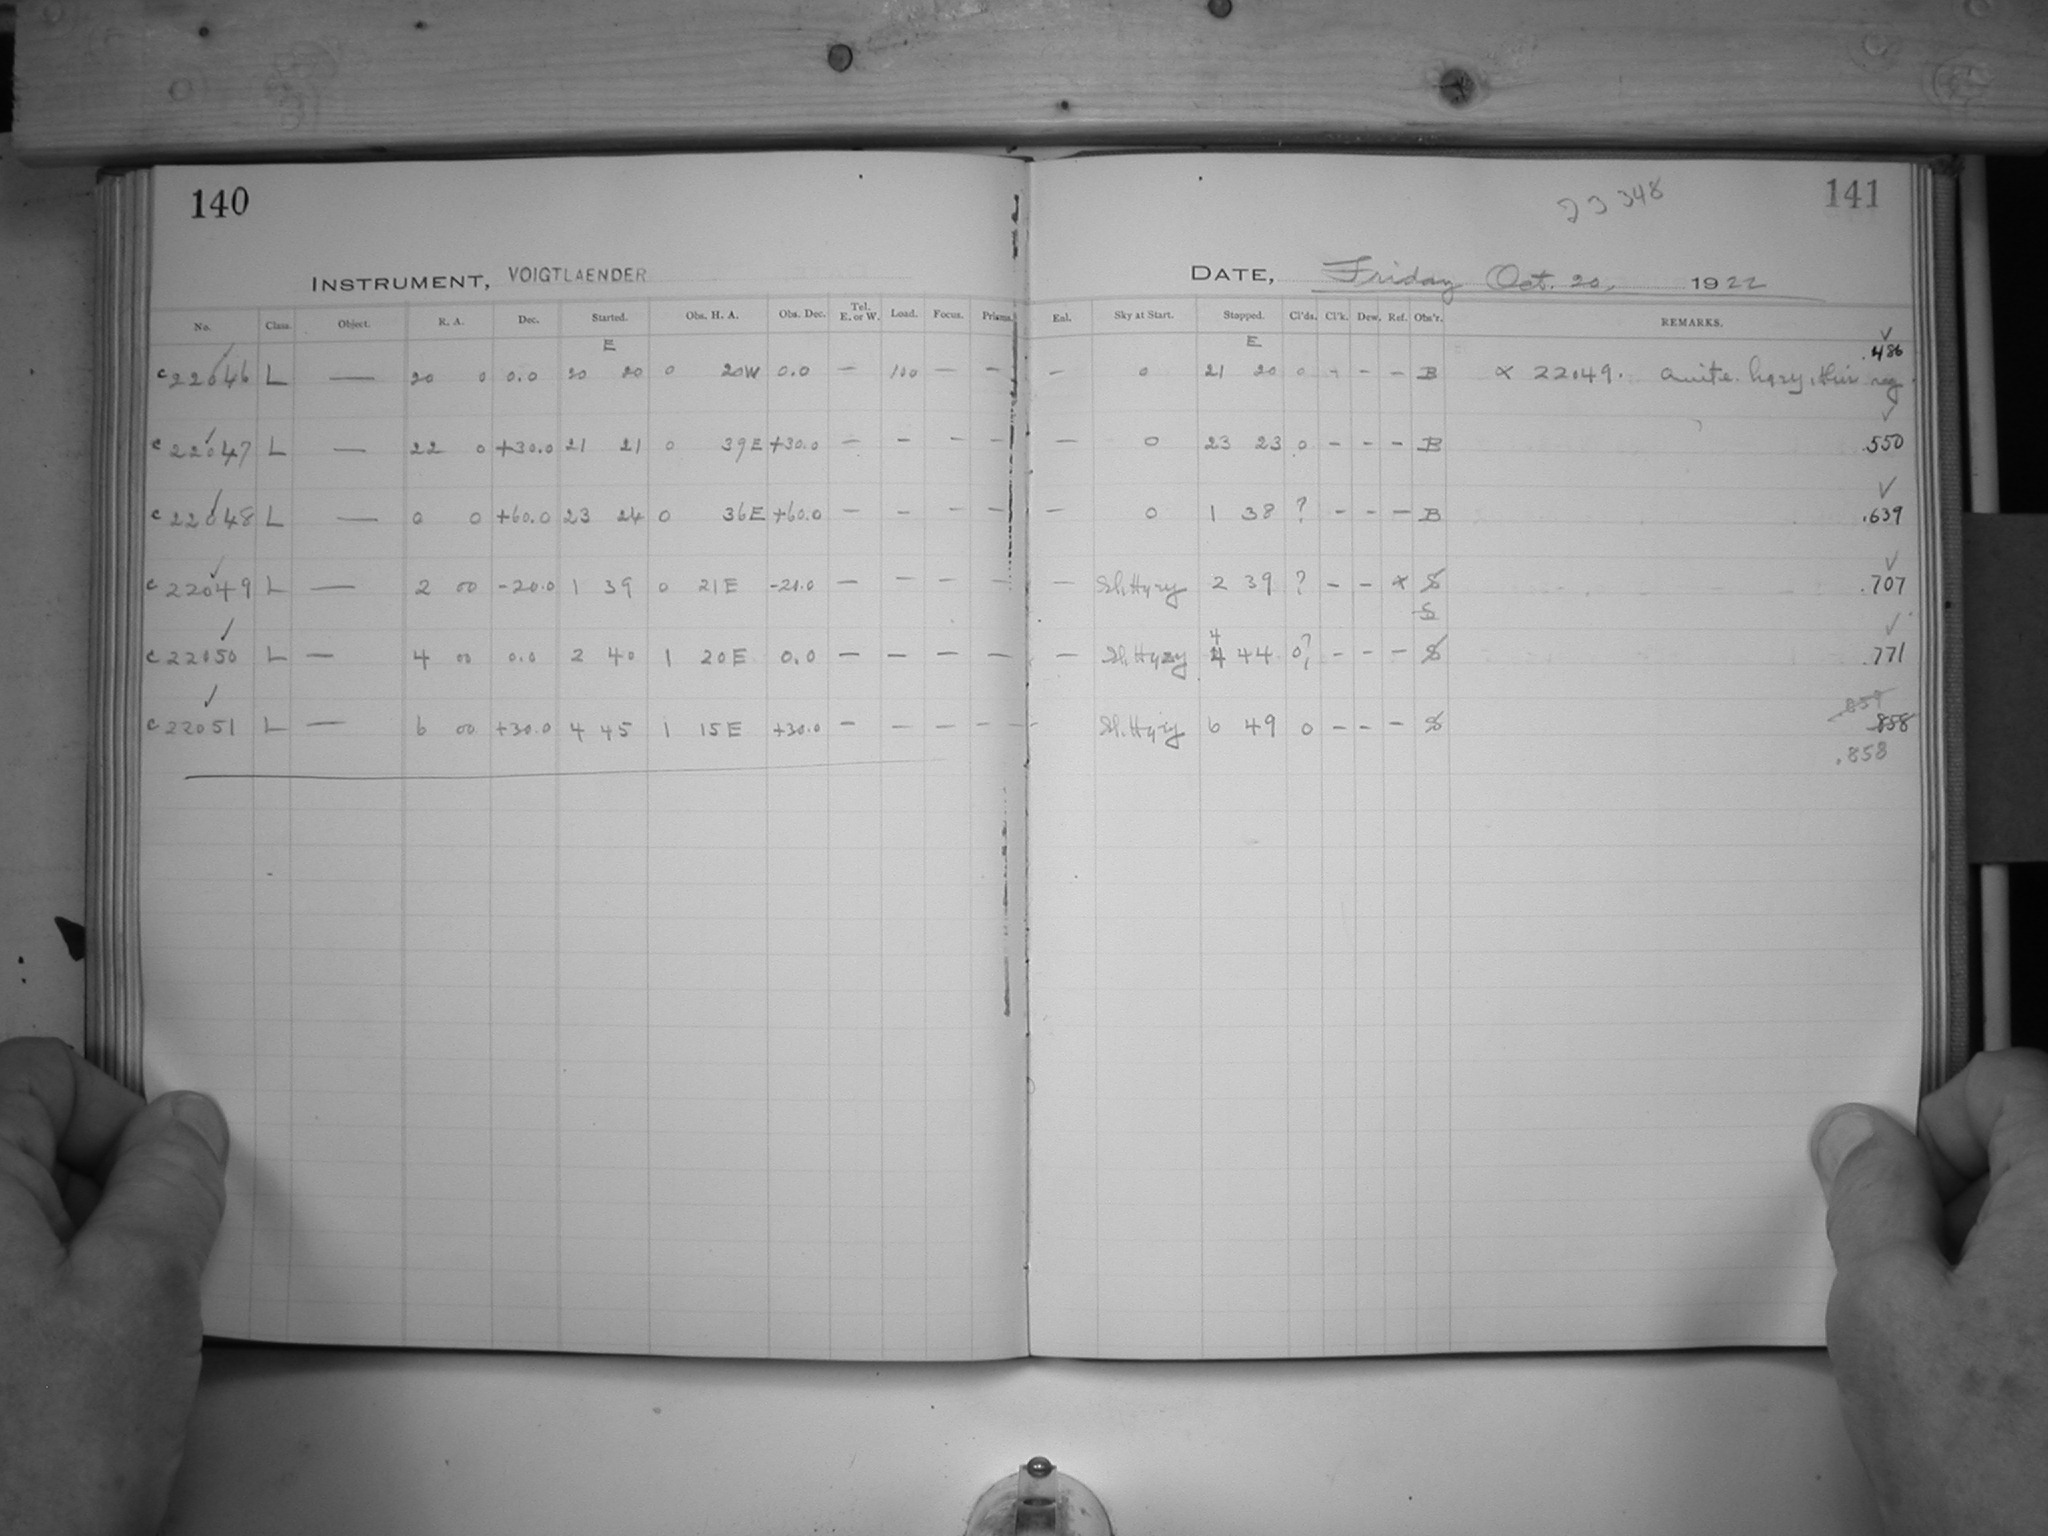 140
INSTRUMENT, VOIGTLAENDER
No. Class. Object. R. A. Dec. Started. Obs. H. A. Obs. Dec. Tel. E. or W. Load. Focus. Prisms.
E
c 22046 L — 20 0 0.0 20 20 0 20W 0.0 — 100 — —
c 22047 L — 22 0 +30.0 21 21 0 39E +30.0 — — — —
c 22048 L — 0 0 +60.0 23 24 0 36E +60.0 — — — —
c 22049 L — 2 00 -20.0 1 39 0 21E -20.0 — — — —
c 22050 L — 4 00 0.0 2 40 1 20E 0.0 — — — —
c 22051 L — 6 00 +30.0 4 45 1 15E +30.0 — — — —
23348
141
DATE, Friday Oct. 20, 1922
Enl. Sky at Start. Stopped. Cl'ds. Cl'k. Dew. Ref. Obs'r. REMARKS.
E
✓
.486
— 0 21 20 0 - - - B x 22049. Quite hazy, this reg.
✓
— 0 23 23 0 - - - B .550
✓
— 0 1 38 ? - - - B .639
✓
— Sl. Hazy 2 39 ? - - x S .707
S
✓
4
— Sl. Hazy 4 44 0? - - - S .771
.859
- Sl. Hazy 6 49 0 - - - S .858
.858